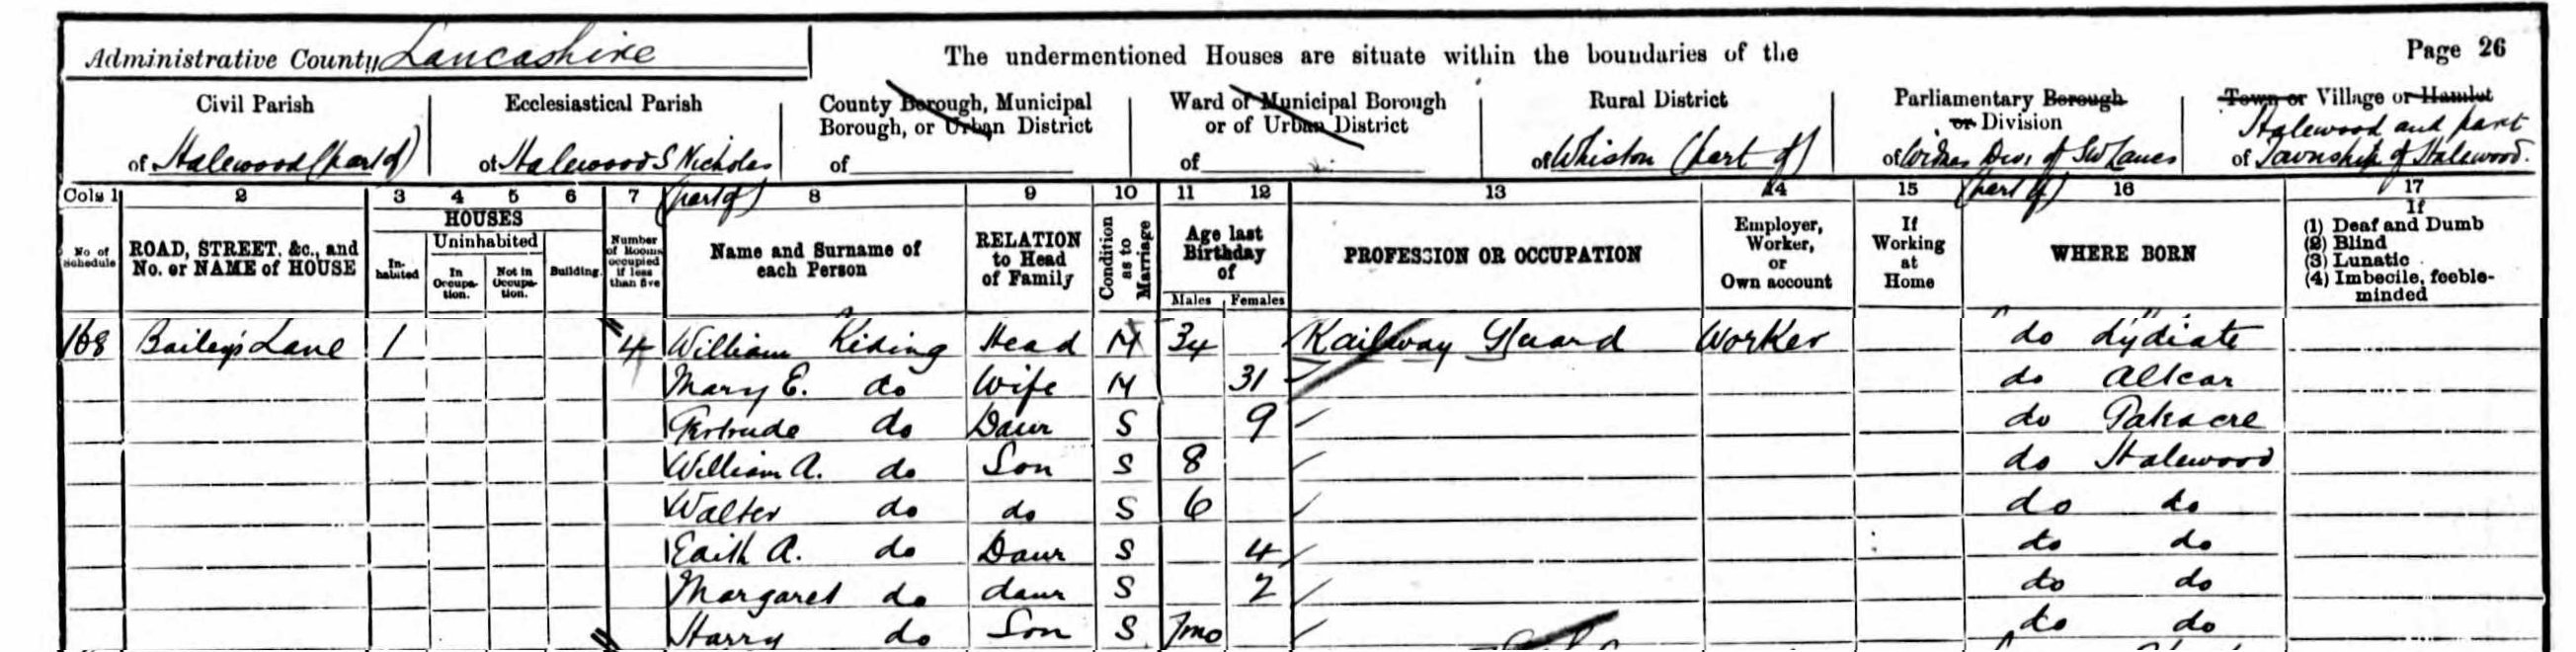 Administrative County Lancashire
The undermentioned Houses are situate within the boundaries of the
Page 26
Civil Parish
of Halewood (part of)
Ecclesiastical Parish
of Halewood S Nicholas (part of)
County Borough, Municipal
Borough, or Urban District
of
Ward of Municipal Borough
or of Urban District
of
Rural District
of Whiston (part of)
Parliamentary Borough
or Division
of Widnes Div. of SW Lancs (part of)
Town or Village or Hamlet
Halewood and part
of Township of Halewood.
Cols 1 2 3 4 5 6 7 8 9 10 11 12 13 14 15 16 17
No. of Schedule
ROAD, STREET, &c., and
No. or NAME of HOUSE
HOUSES
Inhabited
Uninhabited
In Occupation.
Not in Occupation.
Building.
Number of Rooms occupied if less than five
Name and Surname of
each Person
RELATION
to Head
of Family
Condition as to Marriage
Age last
Birthday
of
Males Females
PROFESSION OR OCCUPATION
Employer,
Worker,
or
Own account
If
Working
at
Home
WHERE BORN
If
(1) Deaf and Dumb
(2) Blind
(3) Lunatic
(4) Imbecile, feeble-
minded
168 Bailey's Lane 1 4 William Riding Head M 34 Railway Guard Worker do Lydiate
Mary E. do Wife M 31 do Altcar
Gertrude do Daur S 9 do Oakacre
William A. do Son S 8 do Halewood
Walter do do S 6 do do
Edith A. do Daur S 4 do do
Margaret do daur S 2 do do
Harry do Son S 7mo do do